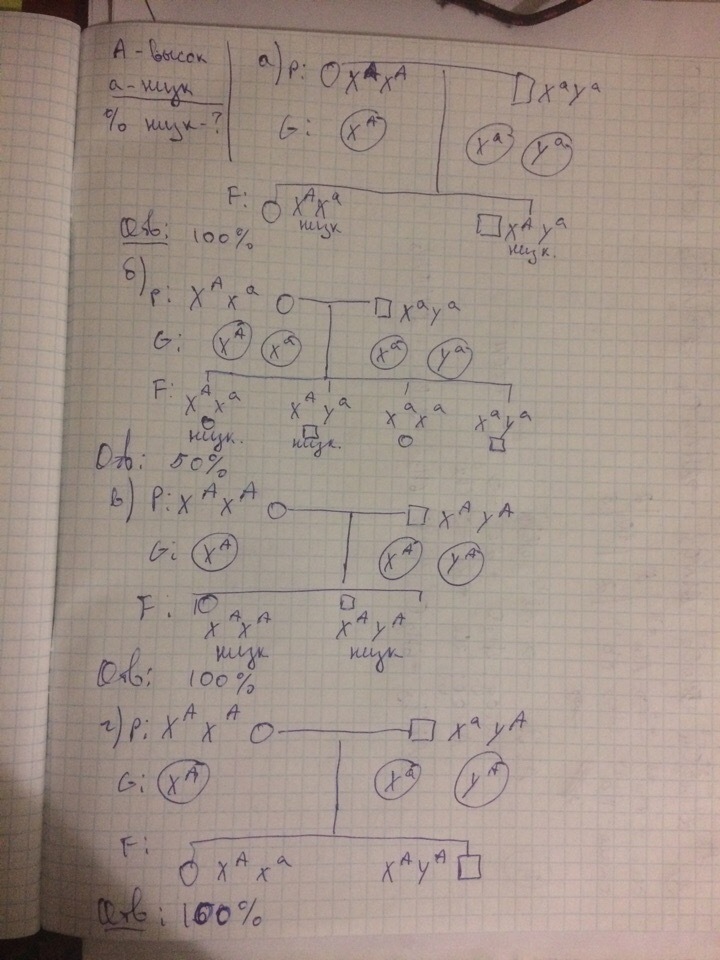 А - высок
а - низк
% низк - ?
а) P: X^A X^A X^a Y^a
G: X^A X^a Y^a
F: X^A X^a X^A Y^a
низк низк.
Отв: 100%
б) P: X^A X^a X^a Y^a
G: X^A X^a X^a Y^a
F: X^A X^a X^A Y^a X^a X^a X^a Y^a
низк. низк.
Отв: 50%
в) P: X^A X^A X^A Y^A
G: X^A X^A Y^A
F: X^A X^A X^A Y^A
низк низк
Отв: 100%
г) P: X^A X^A X^a Y^A
G: X^A X^a Y^A
F: X^A X^a X^A Y^A
Отв: 100%